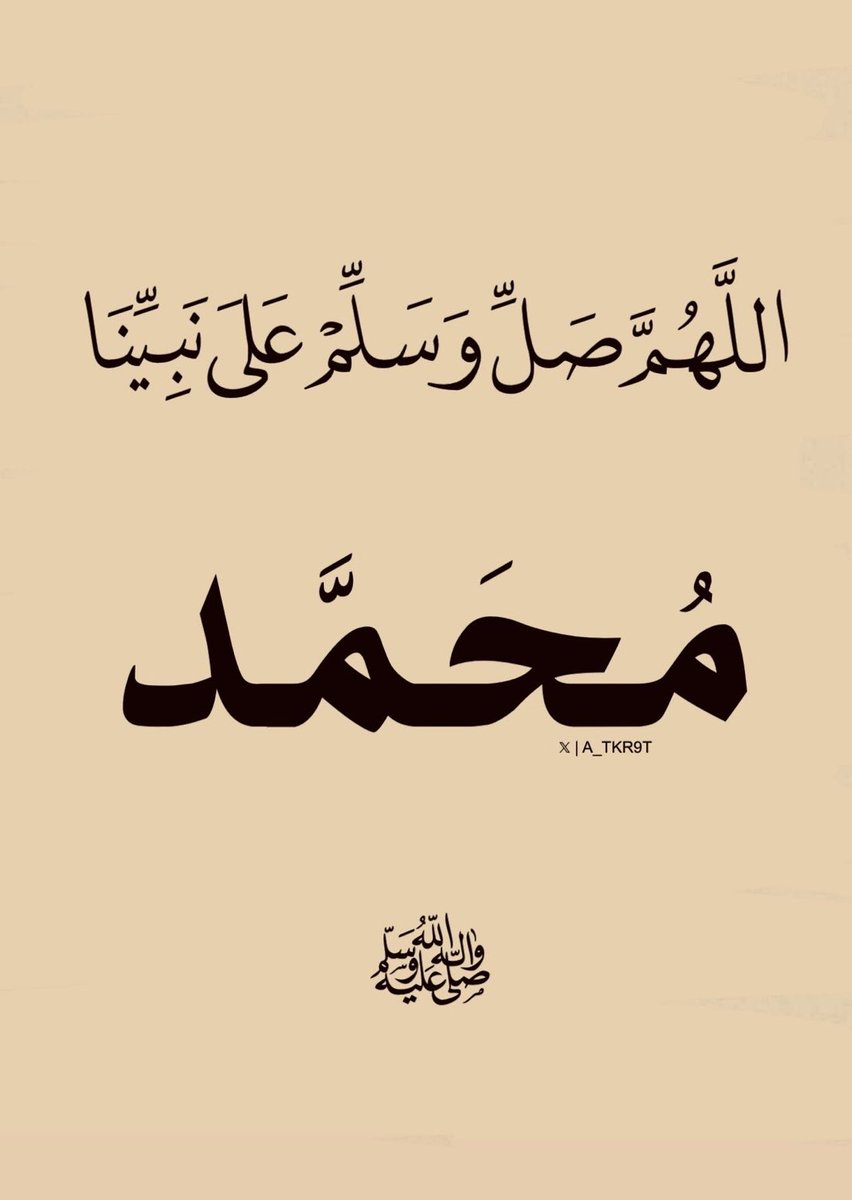 اللَّهُمَّ صَلِّ وَسَلِّمْ عَلَىَ نَبِيِّنَا
مُحَمَّد
𝕏 | A_TKR9T
صلى الله عليه وآله وسلم